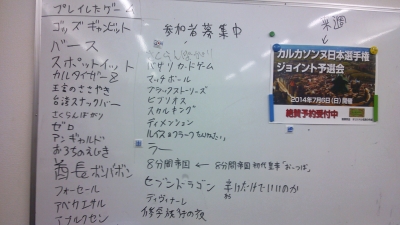 プレイしたゲーム
ゴッズギャンビット
バース
スポットイット
カルタイガーZ
王宮のささやき
台湾スナックバー
さくらんばかり
ゼロ
アンギャルド
おろちのえじき
酋長ボンバボン
フォーセール
アベカエサル
参加者募集中
バサリカードゲーム
マッチボール
ブラックストーリーズ
ビブリオス
スカルキング
ディメンション
ラー
8分間帝国 ← 8分間帝国初代皇帝「おーつぼ」
セブンドラゴン 幸けだけでいいのか
ディヴィナーレ
修学旅行の夜
来週
カルカソンヌ日本選手権
ジョイント予選会
2014年7月6日(日)開催
絶賛予約受付中